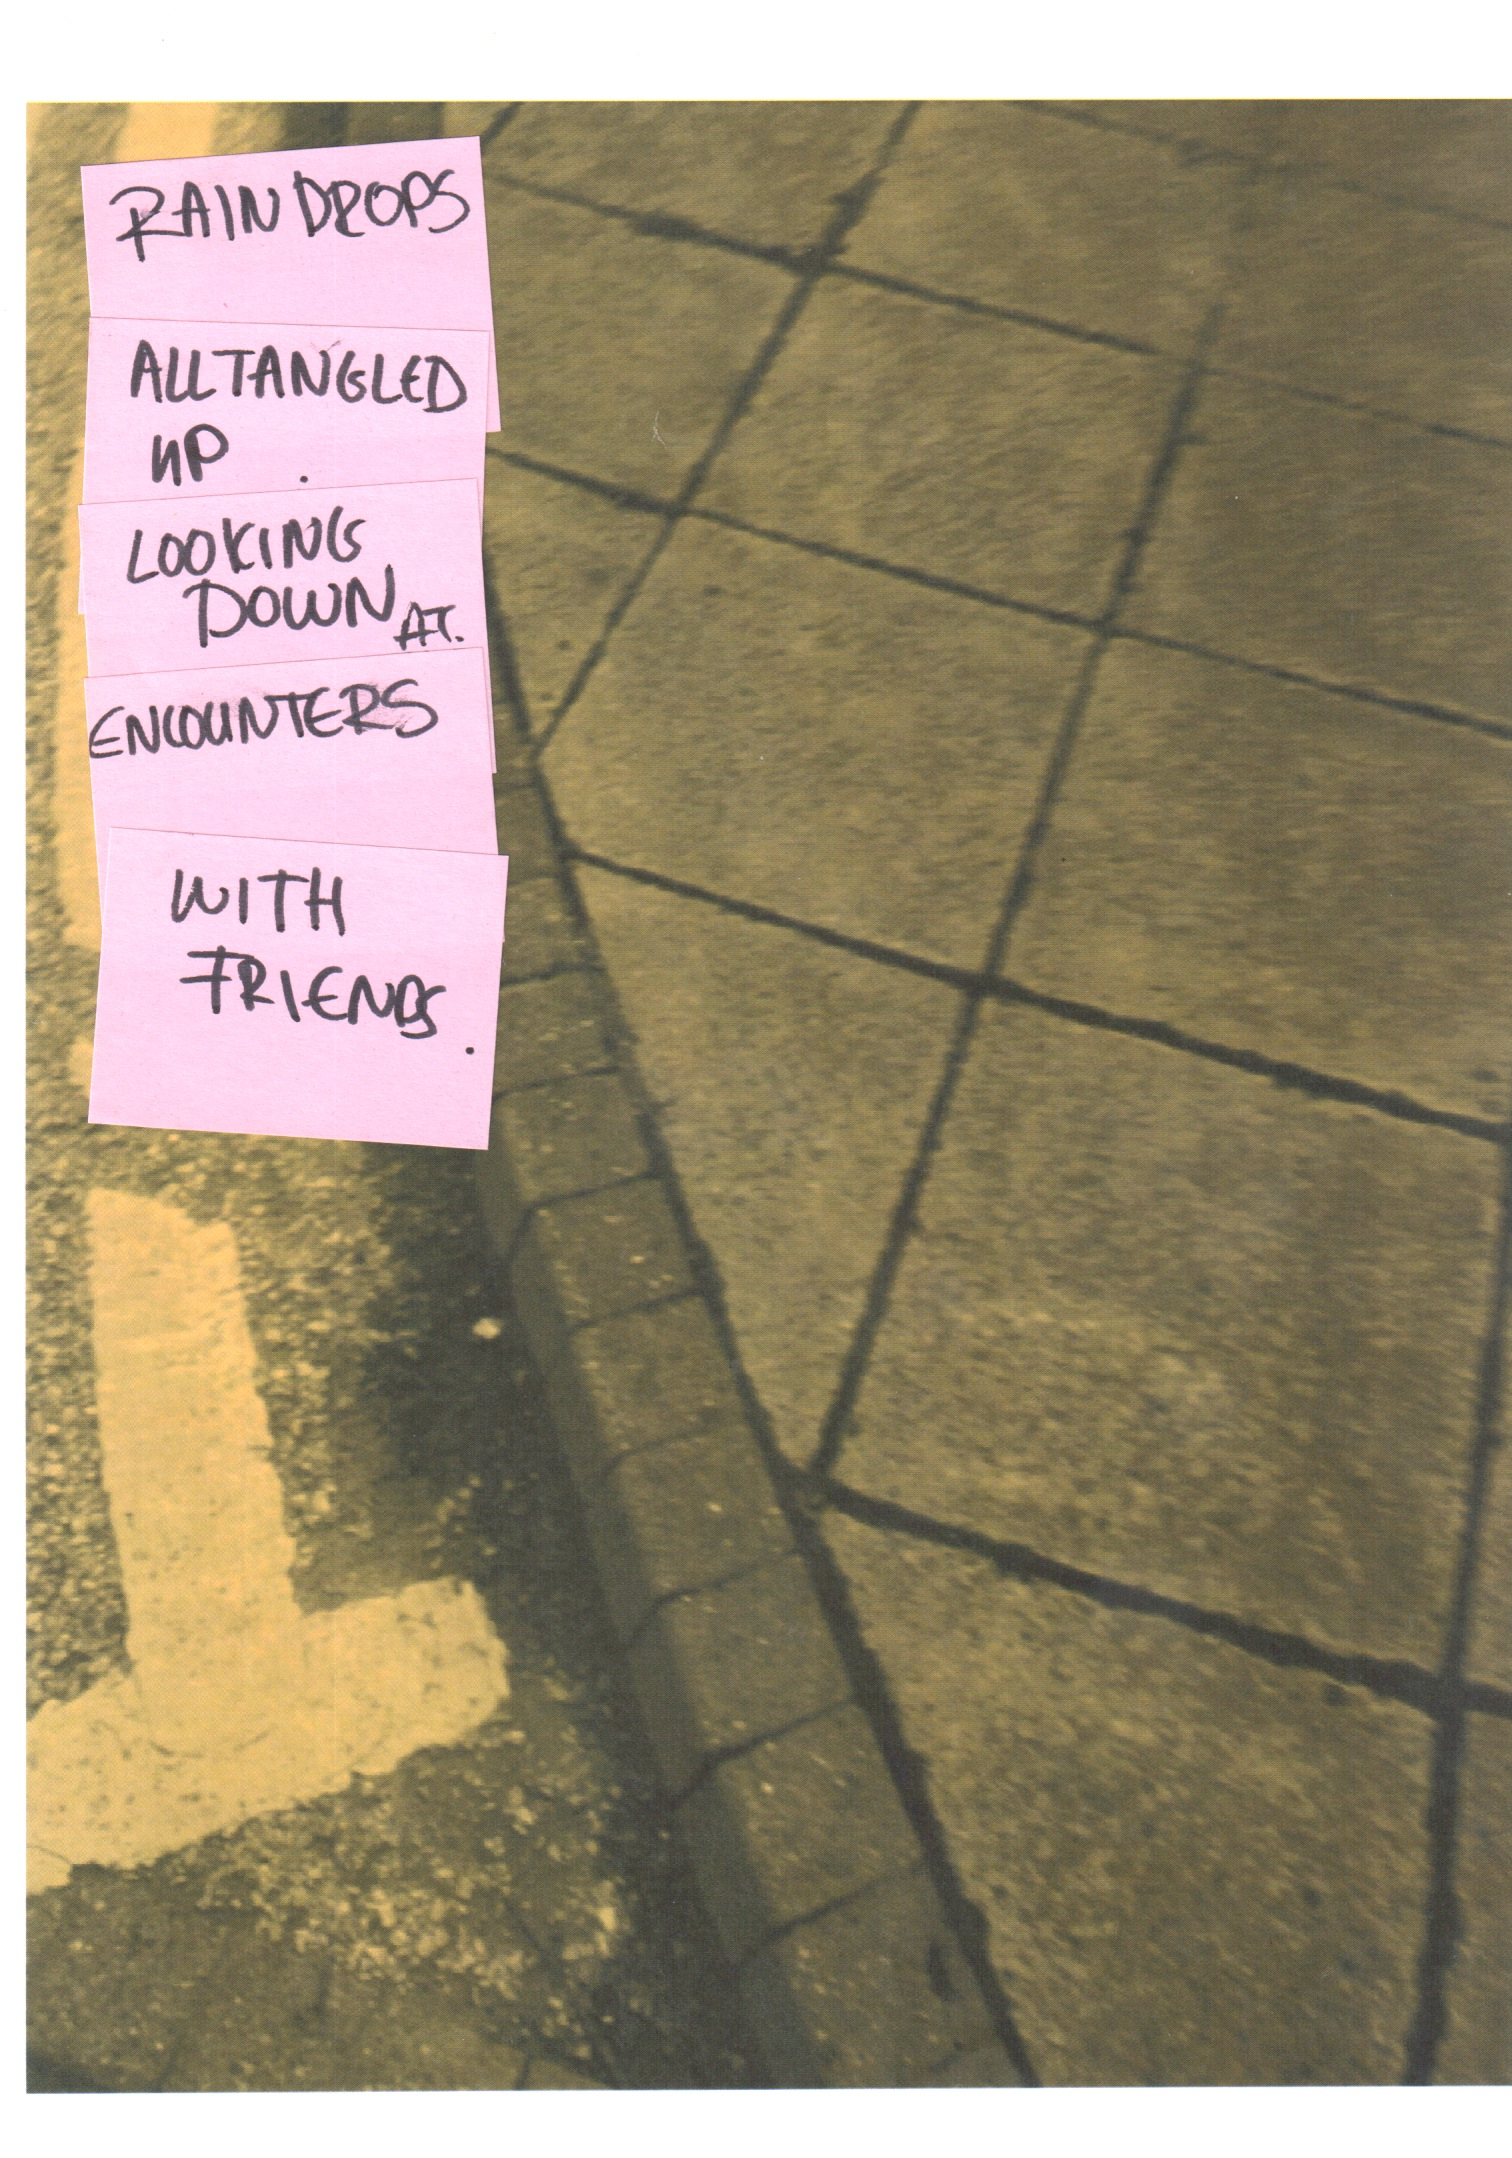 RAINDROPS
ALL TANGLED
UP.
LOOKING
DOWN AT.
ENCOUNTERS
WITH
FRIENDS.